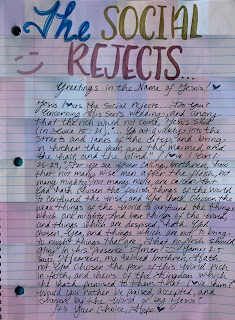 The SOCIAL
REJECTS...
Greetings in the Name of Jesus!
Jesus loves the Social Rejects. In
concerning His Son's wedding, and angry
that the rich would not come, Jesus said
(in Luke 15: 21), "... Go out quickly into the
streets and lanes of the city, and bring
in hither the poor, and the maimed, and
the halt, and the blind."
26-29, "For ye see your calling, brethren, how
that not many wise men after the flesh, not
many mighty, not many noble, are called: But
God hath chosen the foolish things of the world
to confound the wise; and God hath chosen the
weak things of the world to confound the things
which are mighty; And base things of the world,
and things which are despised, hath God
chosen, yea, and things which are not, to bring
to nought things that are: That no flesh should
glory in His presence." James 2:5
says, "Hearken, my beloved brethren, Hath
not God chosen the poor of this world rich
in faith, and heirs of the Kingdom which
He hath promised to them that love Him?"
Would you rather be praised, accepted, and
chosen by the World or by Jesus?
It's Your Choice, Hope